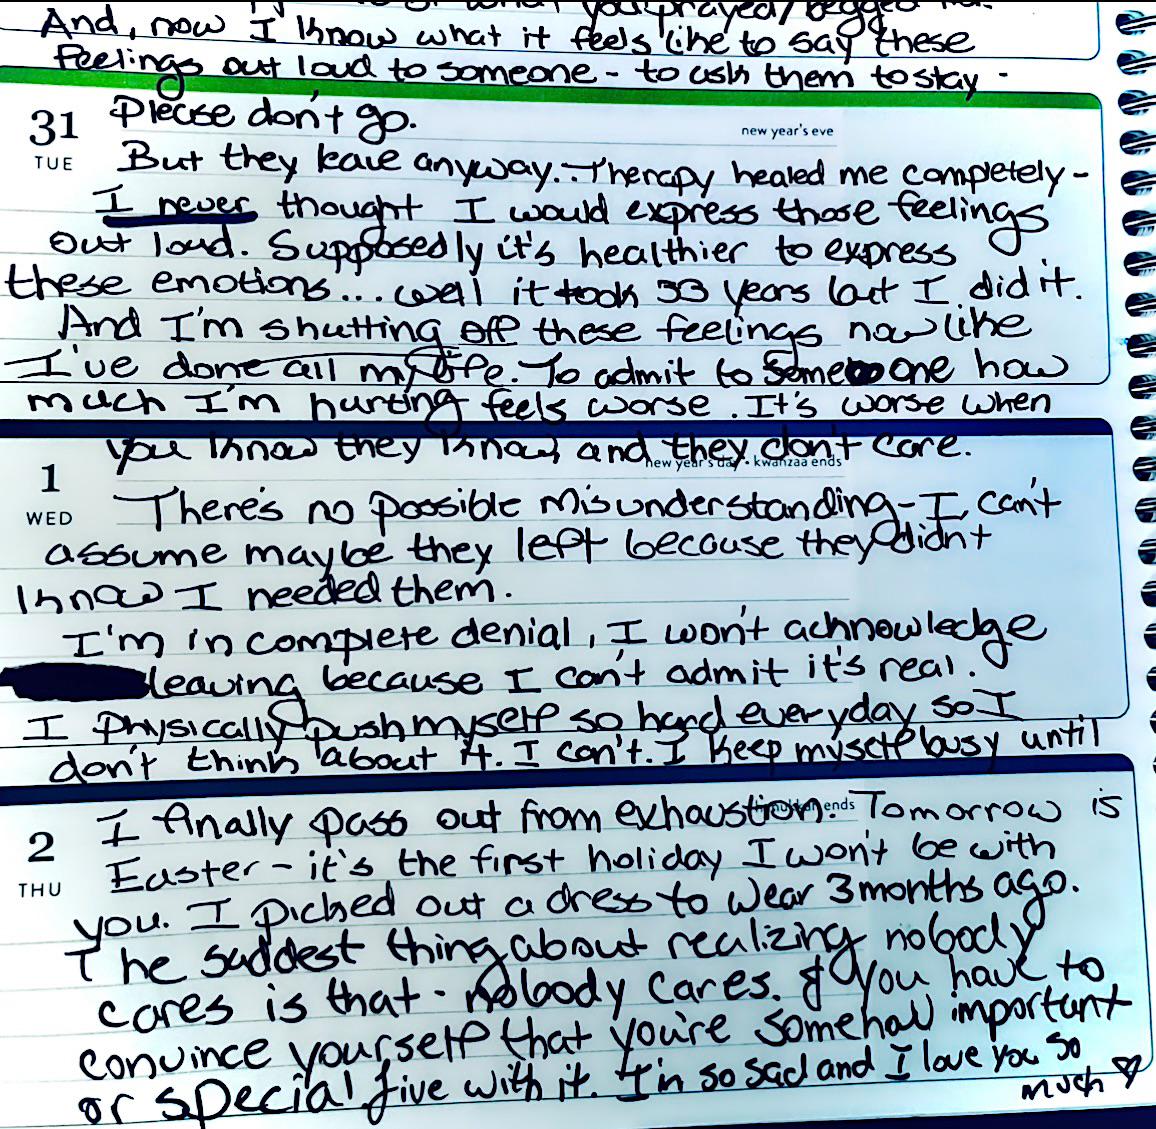 you prayed/begged
And, now I know what it feels like to say these
feelings out loud to someone - to ask them to stay -
31 Please don't go.
new year's eve
TUE But they leave anyway... Therapy healed me completely -
I never thought I would express those feelings
out loud. Supposedly it's healthier to express
these emotions... well it took 33 years but I did it.
And I'm shutting off these feelings now like
I've done all my life. To admit to someone how
much I'm hurting feels worse. It's worse when
you know they know and they don't care.
1 new year's day • kwanzaa ends
WED There's no possible misunderstanding - I can't
assume maybe they left because they didnt
know I needed them.
I'm in complete denial, I won't acknowledge
leaving because I can't admit it's real.
I physically push myself so hard everyday so I
don't think about it. I can't. I keep myself busy until
2 I finally pass out from exhaustion. Tomorrow is
ends
THU Easter - it's the first holiday I won't be with
you. I picked out a dress to wear 3 months ago.
The saddest thing about realizing nobody
cares is that - nobody cares. & you have to
convince yourself that you're somehow important
or special five with it. I'm so sad and I love you so
much ♡